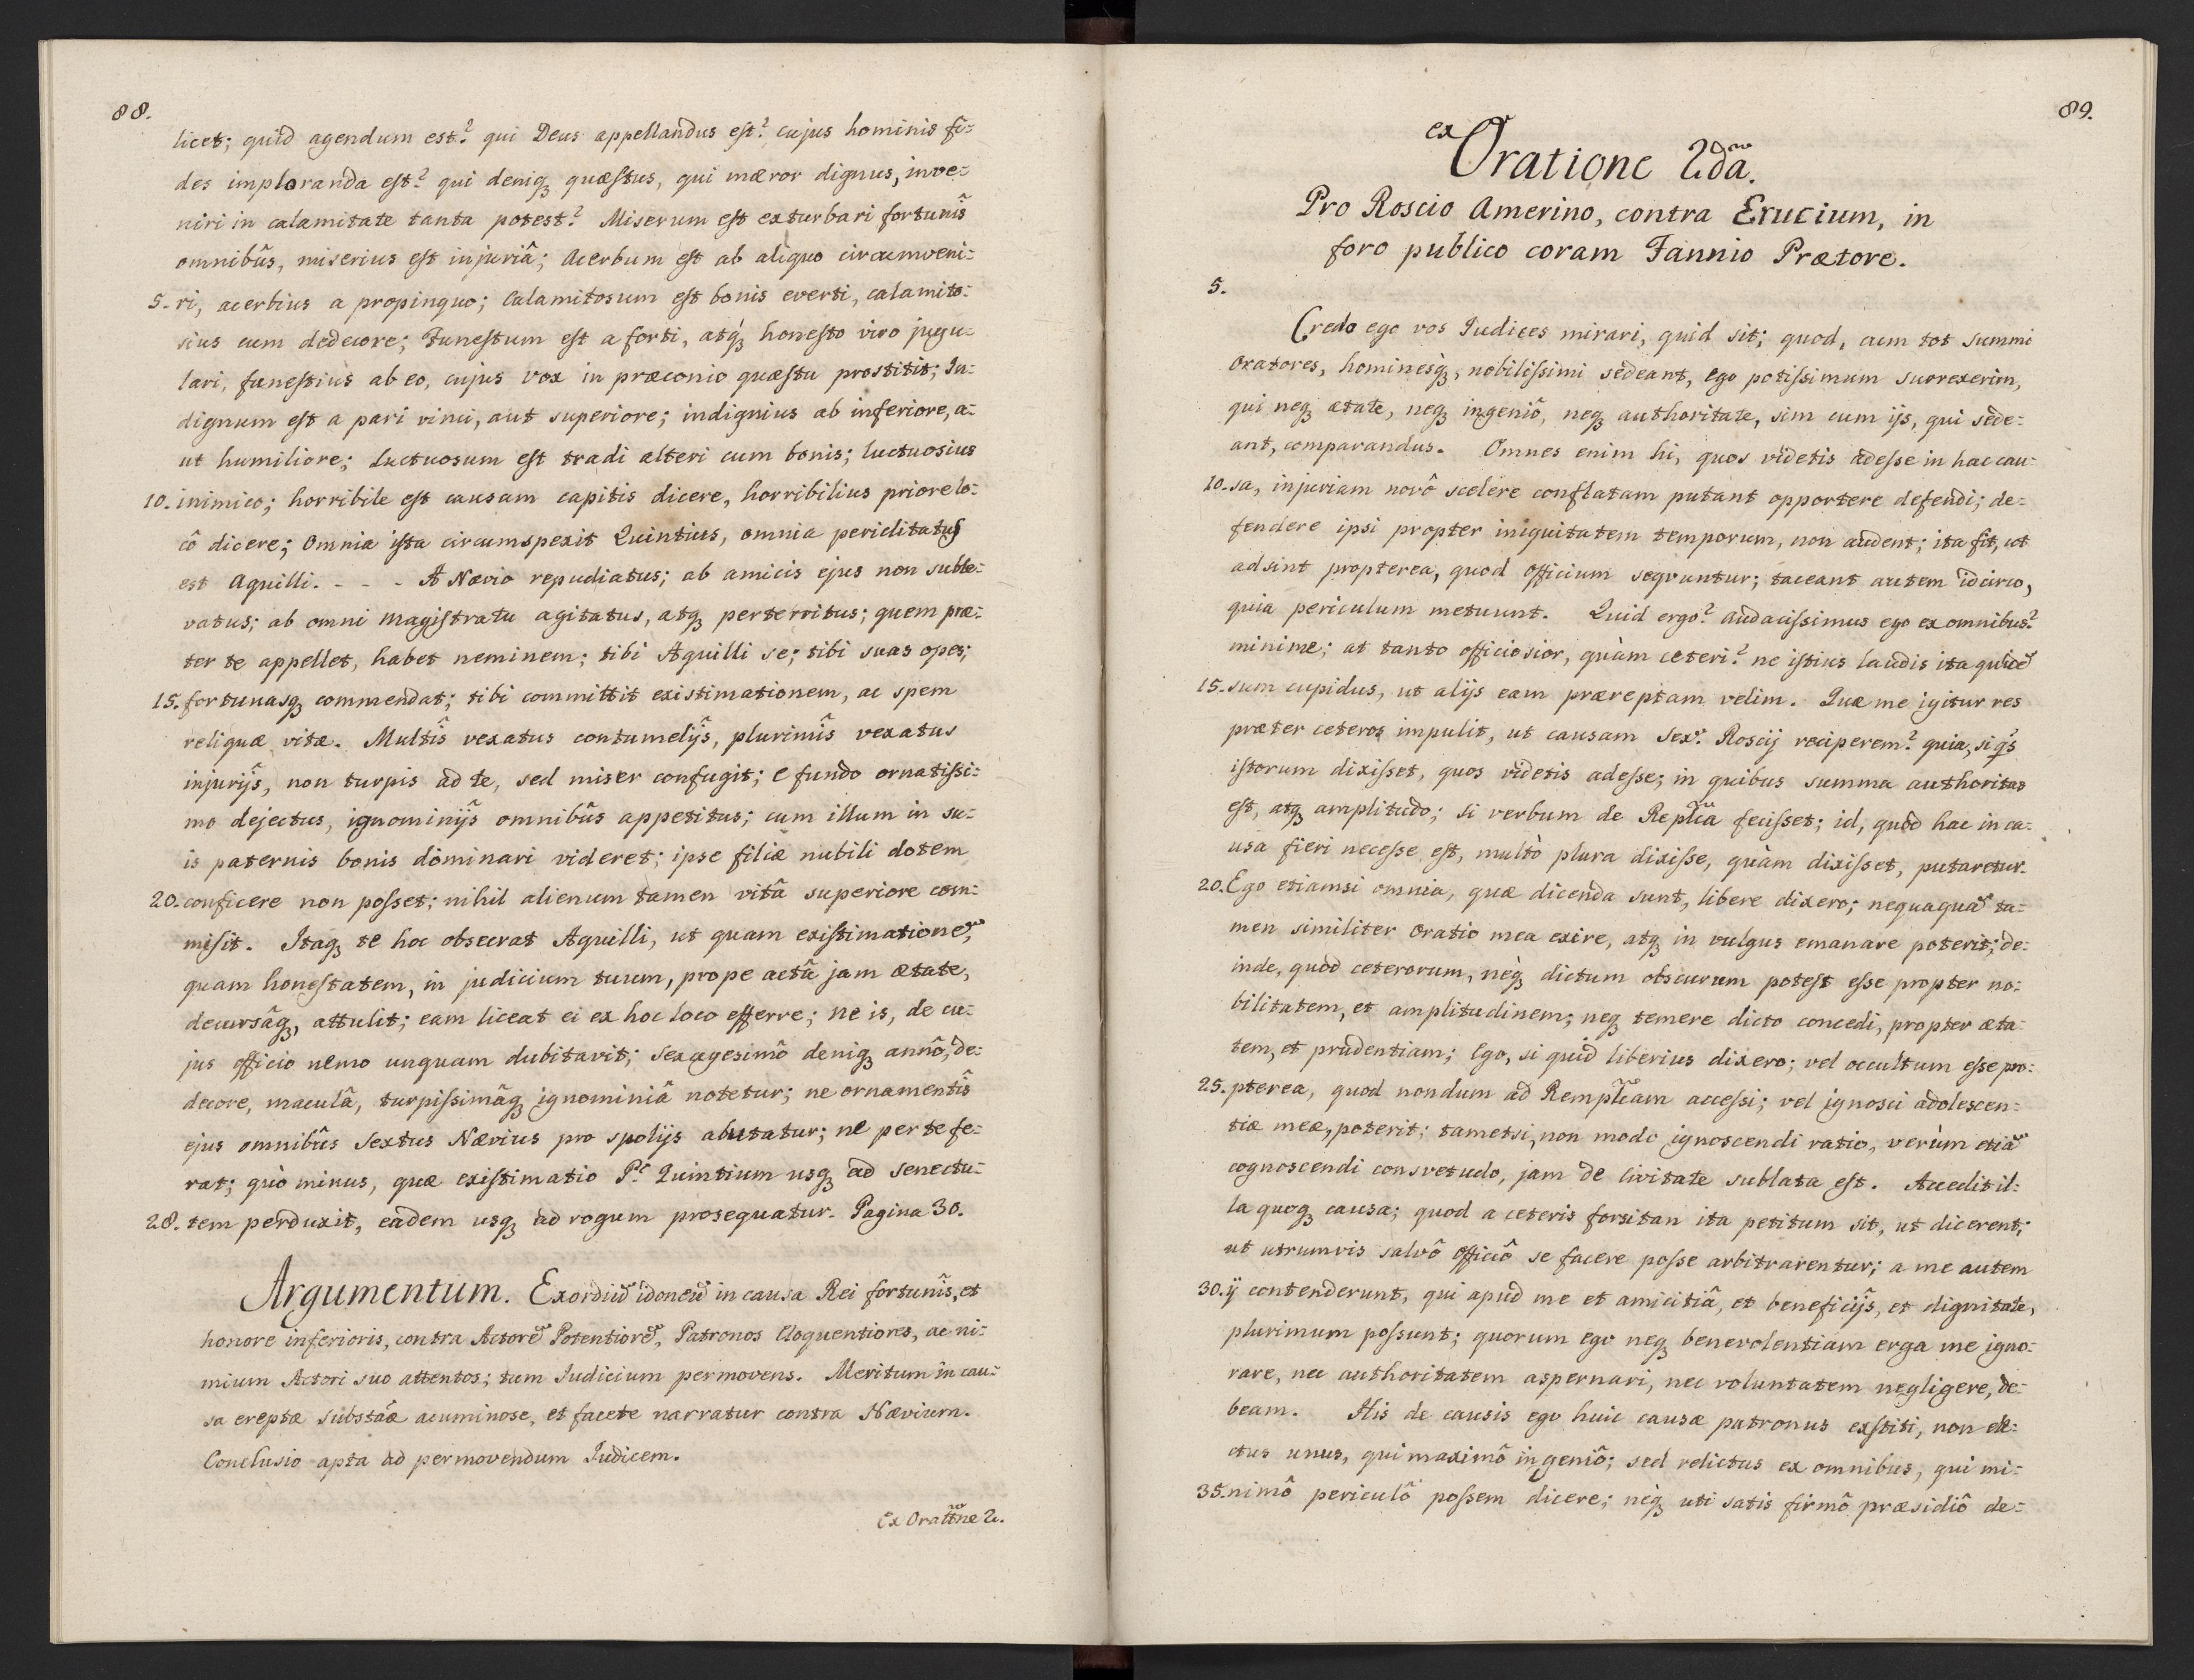 88.
licet; quid agendum est? qui Deus appellandus est? cujus hominis fi=
des imploranda est? qui deniq₃ quæstus, qui mæror dignus, inve=
niri in calamitate tanta potest? Miserum est exturbari fortunîs
omnibûs, miserius est injuriâ; Acerbum est ab aliquo circumveni=
5. ri, acerbius a propinquo; Calamitosum est bonis everti, calamito=
sius cum dedecore; Funestum est a forti, atq₃ honesto viro jugu=
lari, funestius ab eo, cujus vox in præconio quæstu prostitit; In=
dignum est a pari vinci, aut superiore; indignius ab inferiore, a=
ut humiliore; Luctuosum est tradi alteri cum bonis; luctuosius
10. inimico; horribile est causam capitis dicere, horribilius priore lo=
cô dicere; Omnia ista circumspexit Quintius, omnia periclitatus
est Aquilli. - - - A Nævio repudiatus; ab amicis ejus non suble=
vatus; ab omni Magistratu agitatus, atq₃ perterritus; quem præ=
ter te appellet, habet neminem; tibi Aquilli se; tibi suas opes;
15. fortunasq₃ commendat; tibi committit existimationem, ac spem
reliquæ vitæ. Multîs vexatus contumelijs, plurimîs vexatus
injurijs, non turpis ad te, sed miser confugit; e fundo ornatissi=
mo dejectus, ignominijs omnibûs appetitus; cum illum in su=
is paternis bonis dominari videret; ipse filiæ nubili dotem
20. conficere non posset; nihil alienum tamen vitâ superiore com=
misit. Itaq₃ te hoc obsecrat Aquilli, ut quam existimatione͂,
quam honestatem, in judicium tuum, prope actâ jam ætate,
decursâq₃, attulit; eam liceat ei ex hoc loco efferre; ne is, de cu=
jus officio nemo unquam dubitavit; sexagesimô deniq₃ annô, de=
decore, maculâ, turpissimâq₃ ignominiâ notetur; ne ornamentîs
ejus omnibûs Sextus Nævius pro spolijs abutatur; ne per te fe=
rat; quò minus, quæ existimatio P. Quintium usq₃ ad senectu=
28. tem perduxit, eadem usq₃ ad rogum prosequatur. Pagina 30.
Argumentum. Exordiu͂ idoneu͂ in causa Rei fortunîs, et
honore inferioris, contra Actore͂ Potentiore͂, Patronos Eloquentiores, ac ni=
mium Actori suo attentos; tum Iudicium permovens. Meritum in cau=
sa ereptæ substa͂æ acuminose, et facete narratur contra Nævium.
Conclusio apta ad permovendum Iudicem.
Ex Orat͂ne 2.
89.
ex Oratione 2da͂.
Pro Roscio Amerino, contra Erucium, in
foro publico coram Fannio Prætore.
5.
Credo ego vos Iudices mirari, quid sit; quod, cum tot summi
Oratores, hominesq₃, nobilissimi sedeant, ego potissimum surrexerim,
qui neq₃ ætate, neq₃ ingeniô, neq₃ authoritate, sim cum ijs, qui sede=
ant, comparandus. Omnes enim hi, quos videtis adesse in hac cau=
10. sa, injuriam novô scelere conflatam putant opportere defendi; de=
fendere ipsi propter iniquitatem temporum, non audent; ita fit, ut
adsint propterea, quod officium sequuntur; taceant autem idcirco,
quia periculum metuunt. Quid ergo? audacissimus ego ex omnibus?
minime; at tanto officiosior, quàm ceteri? ne istius laudis ita quide͂
15. sum cupidus, ut alijs eam præreptam velim. Quæ me igitur res
præter ceteros impulit, ut causam Sex. Roscij reciperem? quia, si q͂s
istorum dixisset, quos videtis adesse; in quibus summa authoritas
est, atq₃ amplitudo; si verbum de Repl͂ca fecisset; id, quod hac in ca=
usa fieri necesse est, multò plura dixisse, quàm dixisset, putaretur.
20. Ego etiamsi omnia, quæ dicenda sunt, libere dixero; nequaqua͂ ta=
men similiter Oratio mea exire, atq₃ in vulgus emanare poterit; de=
inde, quod ceterorum, neq₃ dictum obscurum potest esse propter no=
bilitatem, et amplitudinem; neq₃ temere dicto concedi, propter æta=
tem, et prudentiam; Ego, si quid liberius dixero; vel occultum esse pro=
25. pterea, quod nondum ad Rempl͂cam accessi; vel ignosci adolescen=
tiæ meæ, poterit; tametsi, non modo ignoscendi ratio, verùm etia͂
cognoscendi consvetudo, jam de Civitate sublata est. Accedit il=
la quoq₃ causa; quod a ceteris forsitan ita petitum sit, ut dicerent;
ut utrumvis salvô officiô se facere posse arbitrarentur; a me autem
30. ij contenderunt, qui apud me et amicitiâ, et beneficijs, et dignitate,
plurimum possunt; quorum ego neq₃ benevolentiam erga me igno=
rare, nec authoritatem aspernari, nec voluntatem negligere, de=
beam. His de causis ego huic causæ patronus exstiti, non ele=
ctus unus, qui maximô ingeniô; sed relictus ex omnibus, qui mi=
35. nimô periculô possem dicere; neq₃ uti satis firmô præsidiô de=